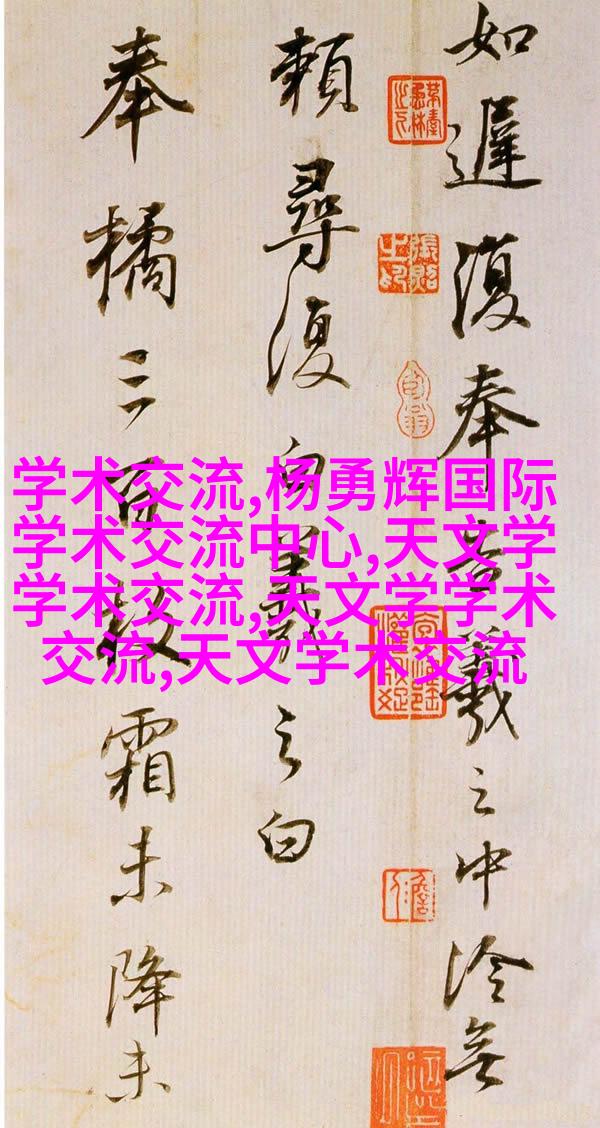 如遲復奉告羲之中冷無
賴尋復白羲之白
奉橘三百枚霜未降未
学术交流,杨勇辉国际
学术交流中心,天文学
学术交流,天文学学术
交流,天文学术交流